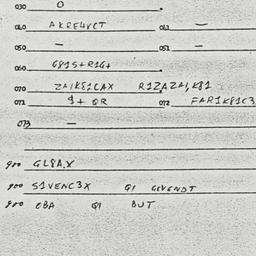 030 0
040 AKREUVCT 041 —
050 — 051 —
060 6815+R1G+
070 ZAIK81CAX R1ZAZAI,K81
071 9+ QR 072 FAR1K81C3
073 —
900 GL8A.X
900 S1VENC3X QI GIVENDT
980 CBA QI BUT